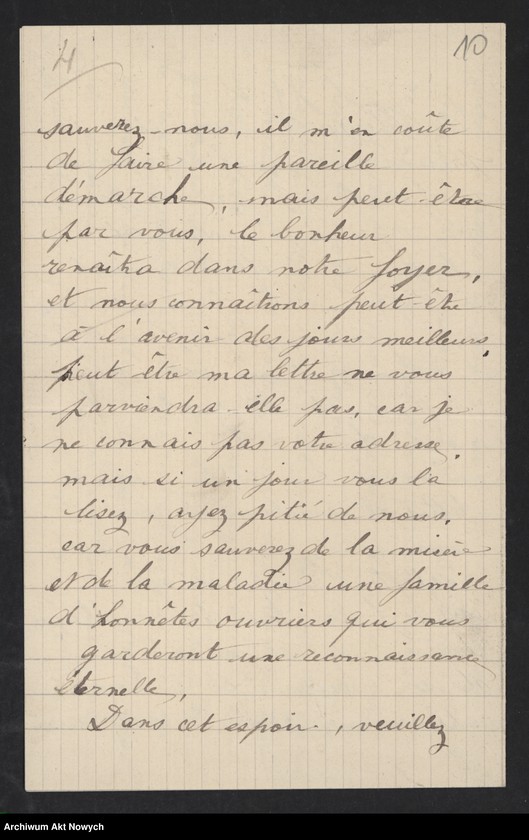 4
10
sauverez-nous, il m'en coûte
de faire une pareille
démarche, mais peut-être
par vous, le bonheur
renaîtra dans notre foyer,
et nous connaîtions peut-être
à l'avenir des jours meilleurs,
peut être ma lettre ne vous
parviendra-elle pas, car je
ne connais pas votre adresse,
mais si un jour vous la
lisez, ayez pitié de nous,
car vous sauverez de la misère
et de la maladie une famille
d'honnêtes ouvriers qui vous
garderont une reconnaissance
éternelle,
Dans cet espoir, veuillez
Archiwum Akt Nowych